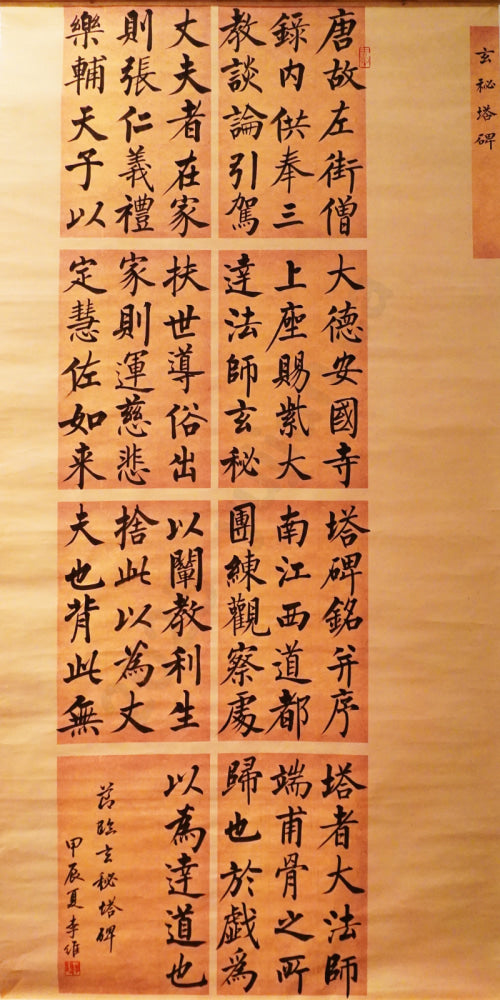 玄秘塔碑
唐故左街僧
錄内供奉三
教談論引駕
大德安國寺
上座賜紫大
達法師玄秘
塔碑銘并序
南江西道都
團練觀察處
塔者大法師
端甫骨之所
歸也於戲為
丈夫者在家
則張仁義禮
樂輔天子以
扶世導俗出
家則運慈悲
定慧佐如来
以闡教利生
捨此以為丈
夫也背此無
以為達道也
节临玄秘塔碑
甲辰夏李维